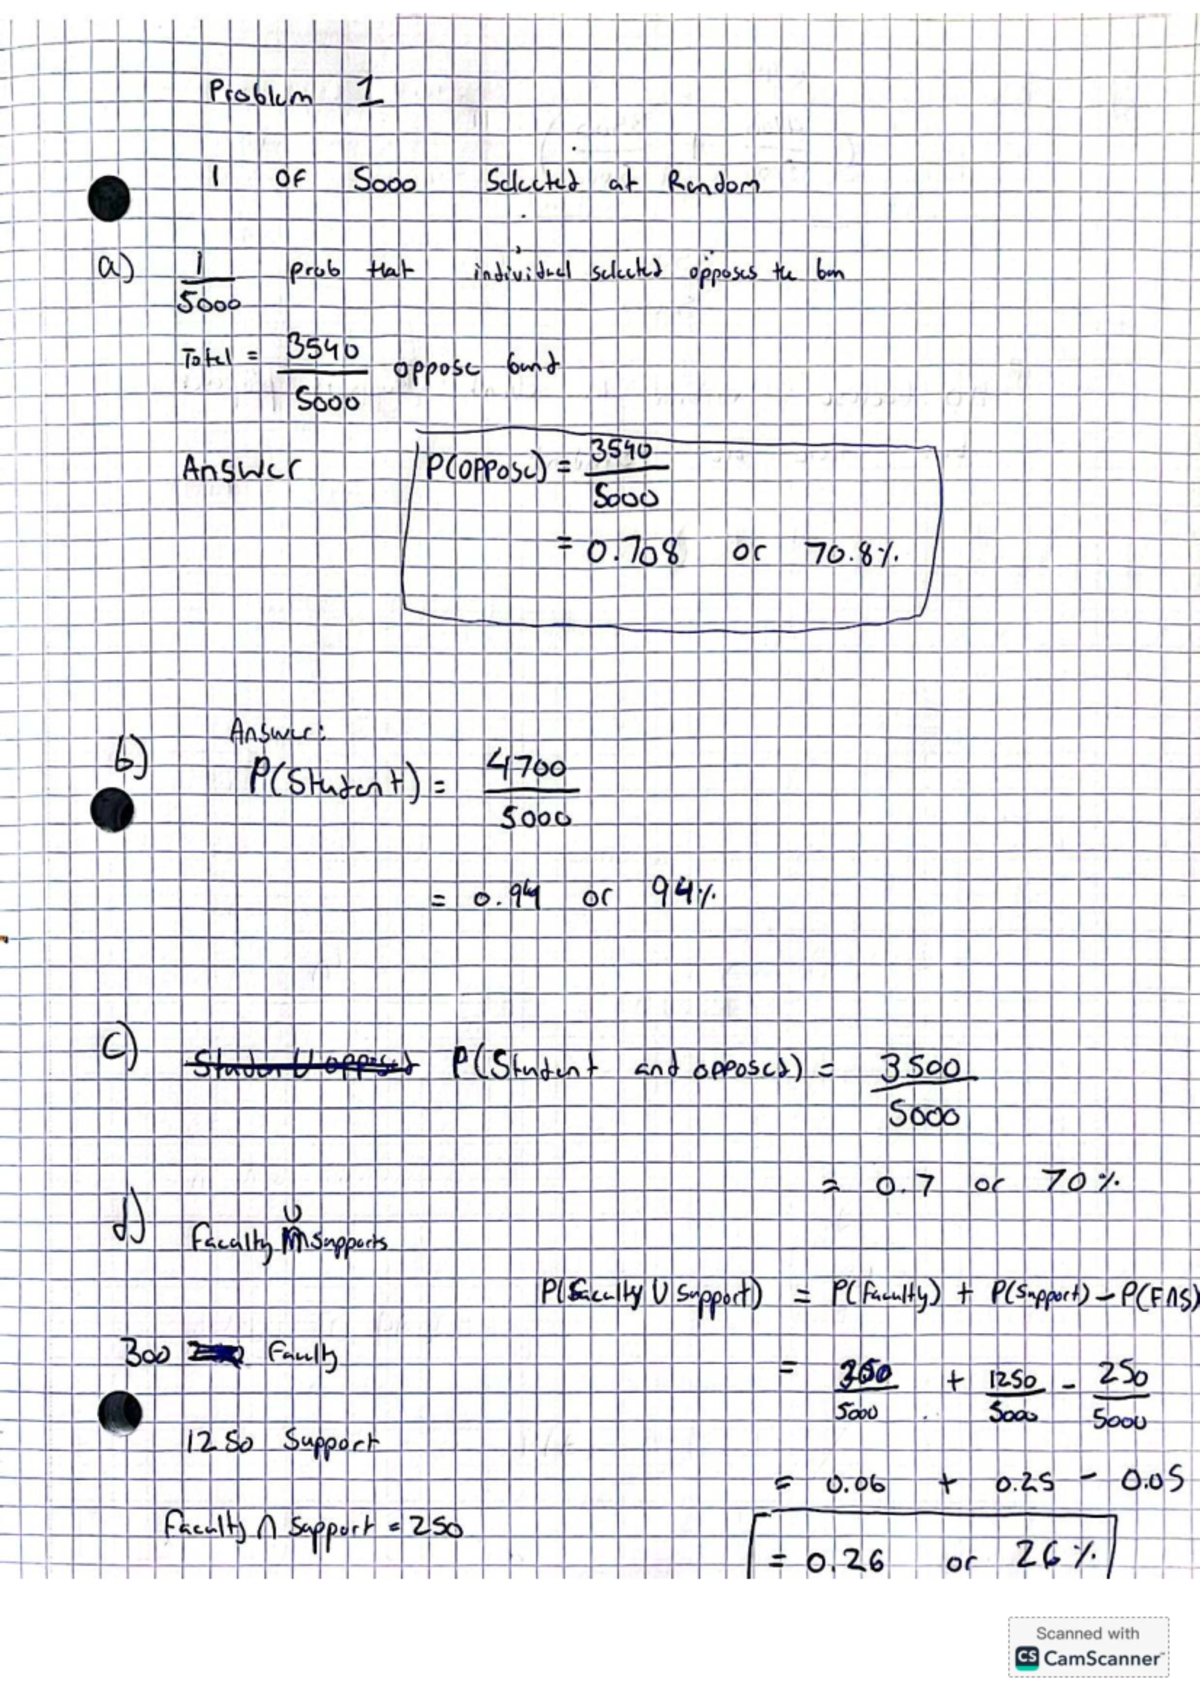 Problem 1
1 OF 5000 Selected at Random
a) 1/5000 prob that individual selected opposes the ban
Total = 3540/5000 oppose
Answer P(oppose) = 3540/5000
= 0.708 or 70.8%
Answer:
b) P(Student) = 4700/5000
= 0.94 or 94%
c) P(Student and opposed) = 3500/5000
= 0.7 or 70%
d) Faculty U Supports
P(Faculty U Support) = P(Faculty) + P(Support) - P(F∩S)
300 Faculty
= 300/5000 + 1250/5000 - 250/5000
1250 Support
= 0.06 + 0.25 - 0.05
Faculty ∩ Support = 250
= 0.26 or 26%
Scanned with
CS CamScanner